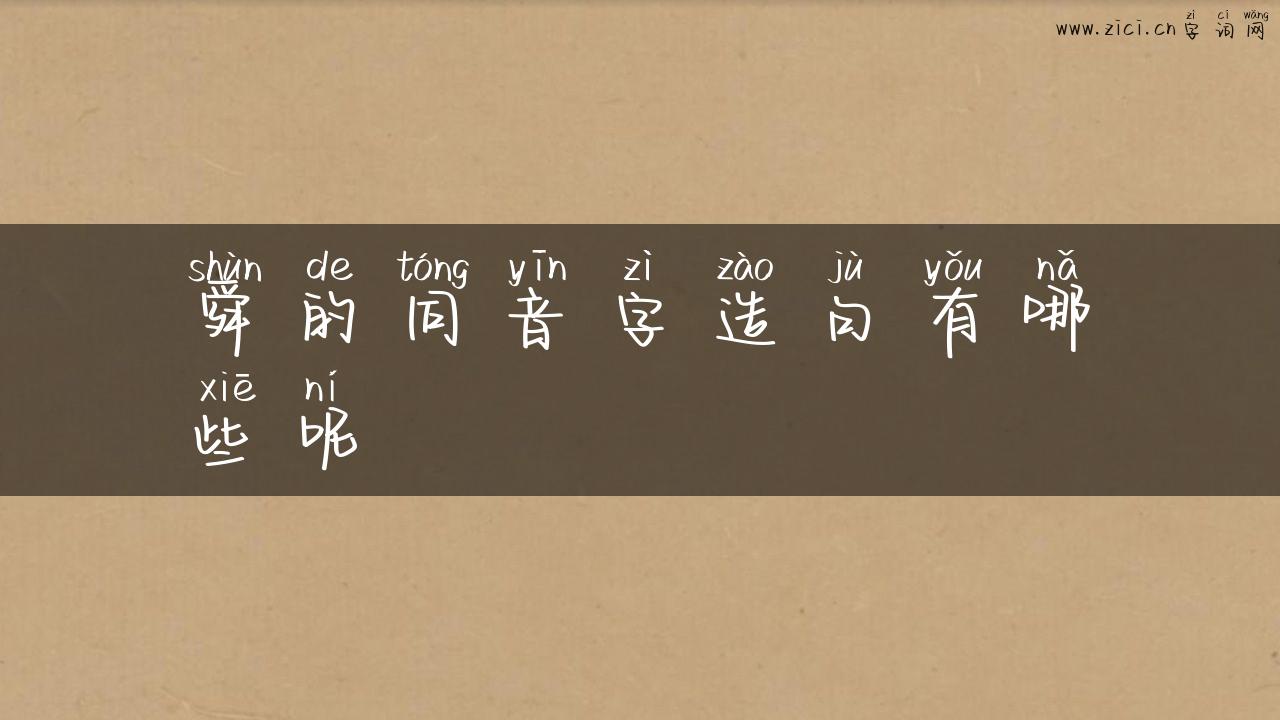 zì cí wǎng
www.zici.cn 字词网
shùn de tóng yīn zì zào jù yǒu nǎ
舜的同音字造句有哪
xiē ní
些呢